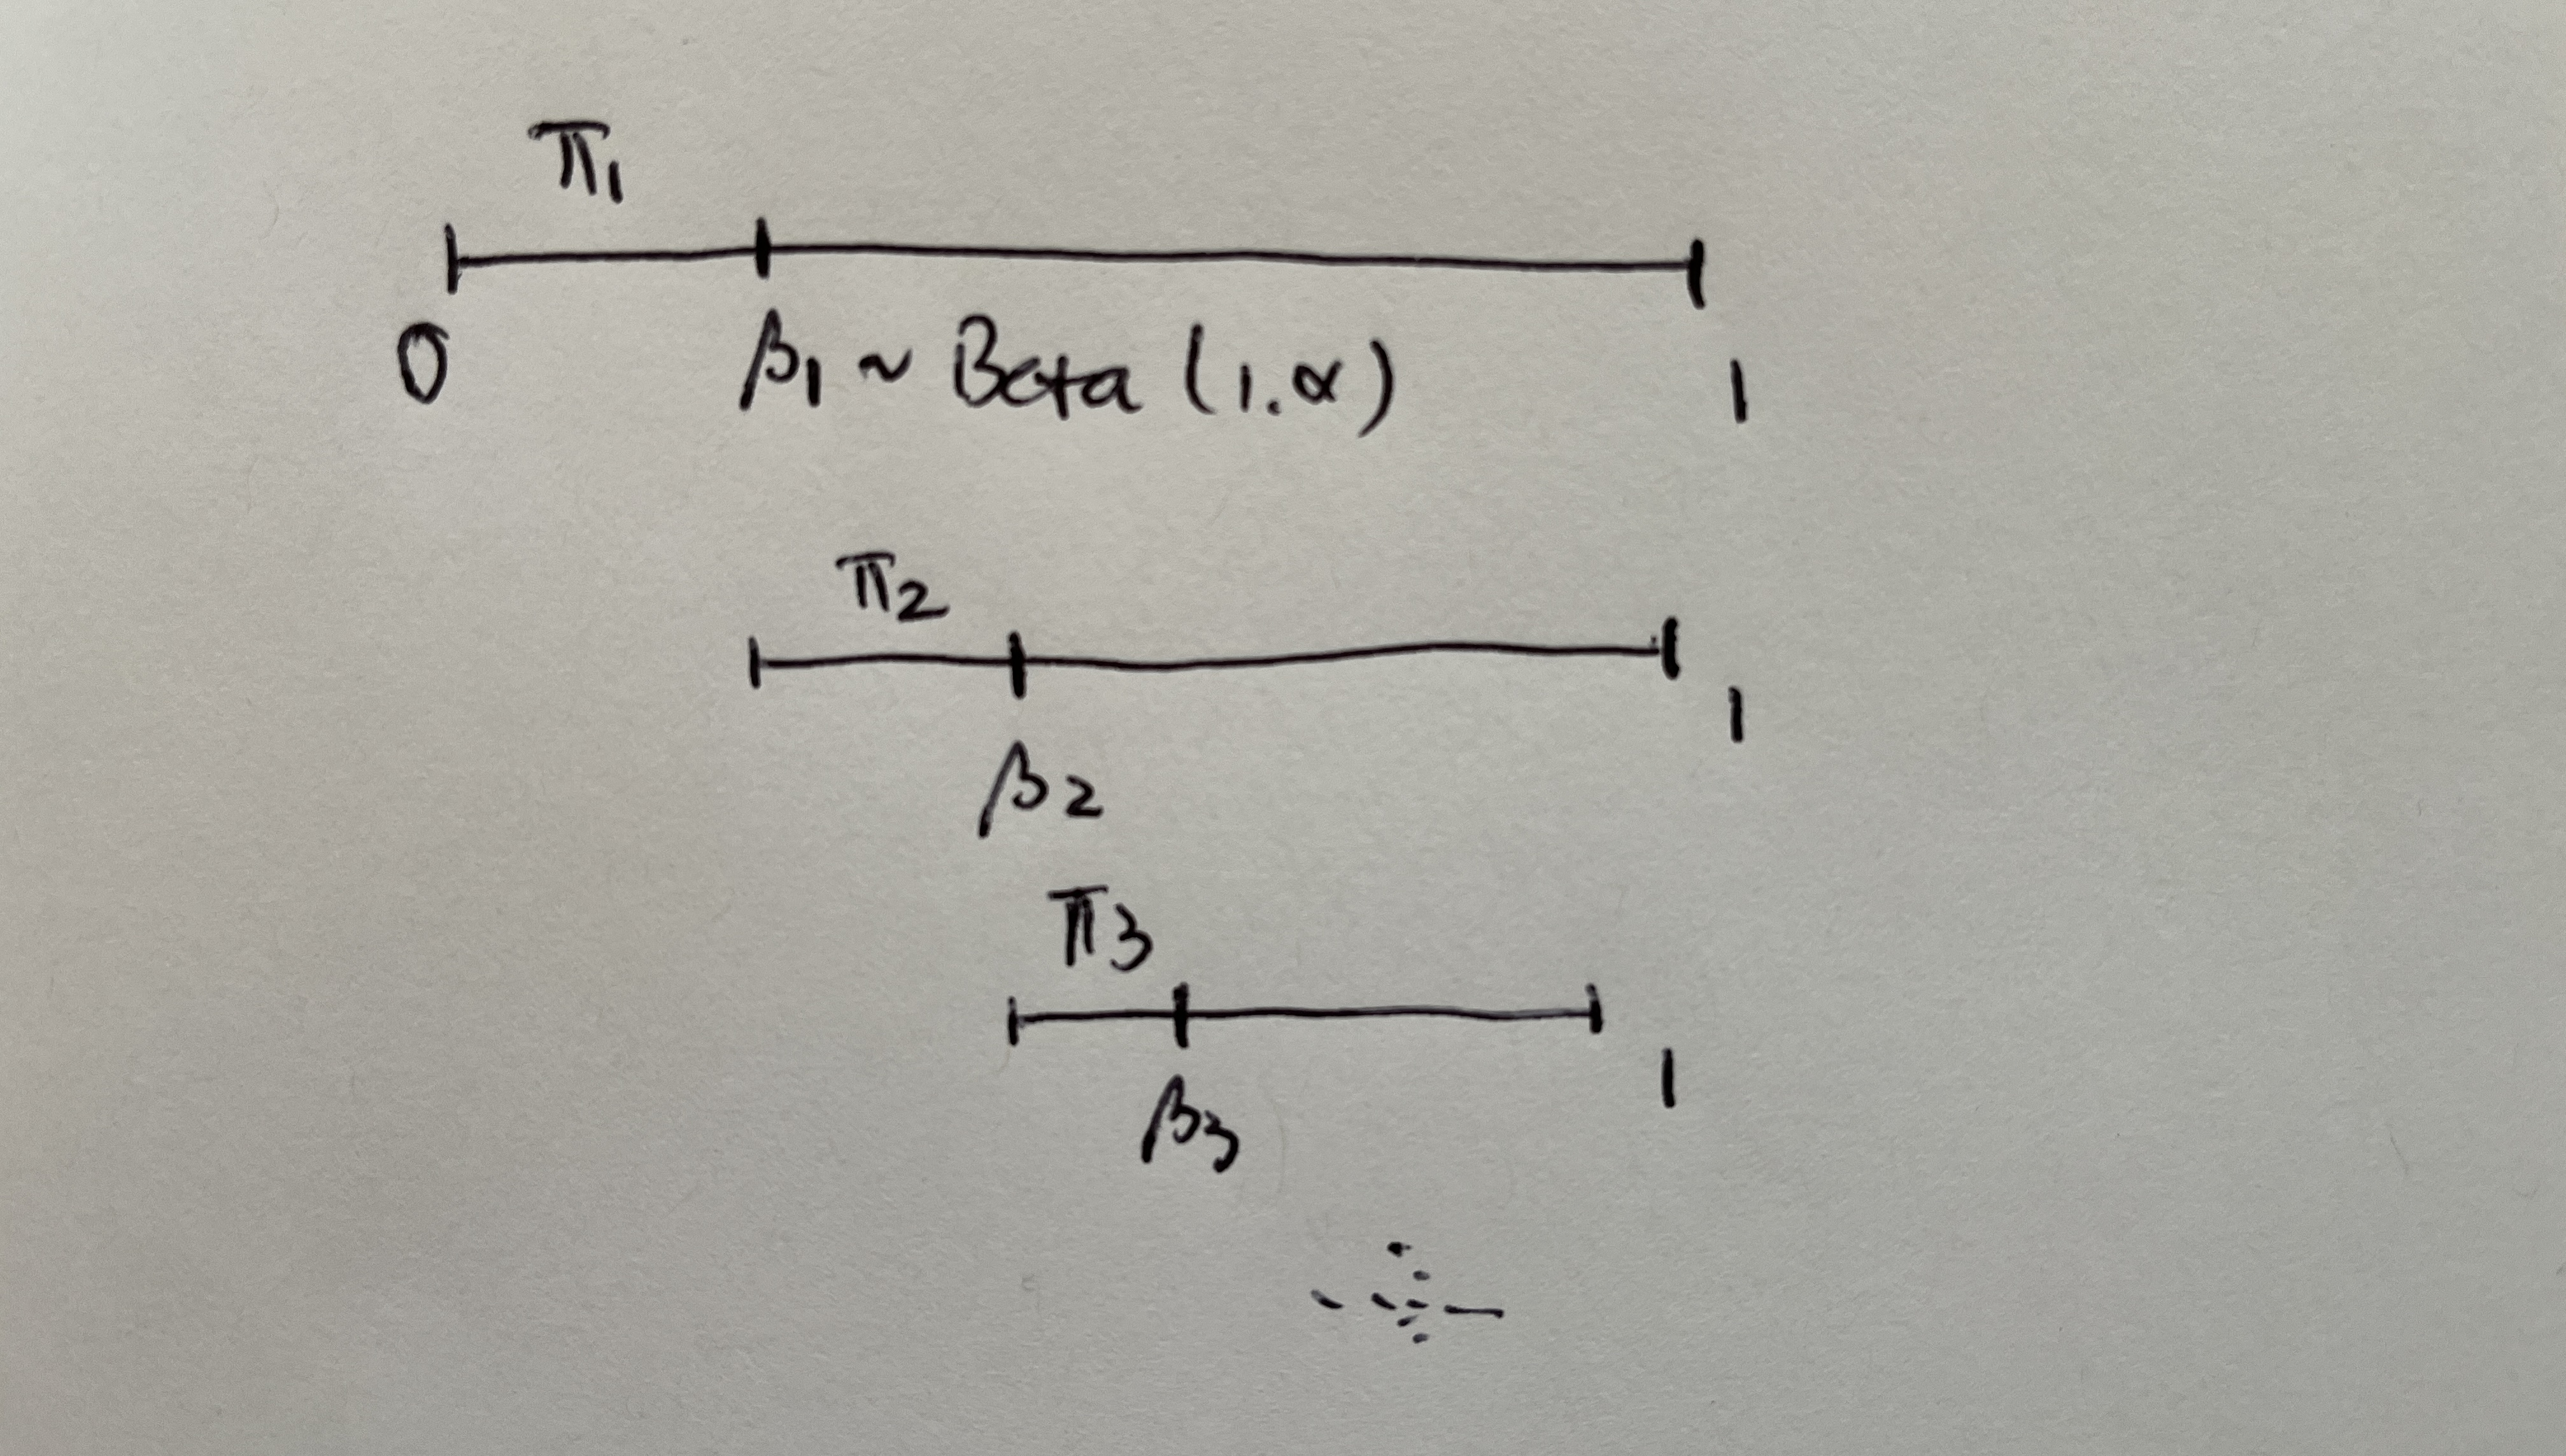 π1
0 β1 ~ Beta (1.α) 1
π2
1
β2
π3
1
β3